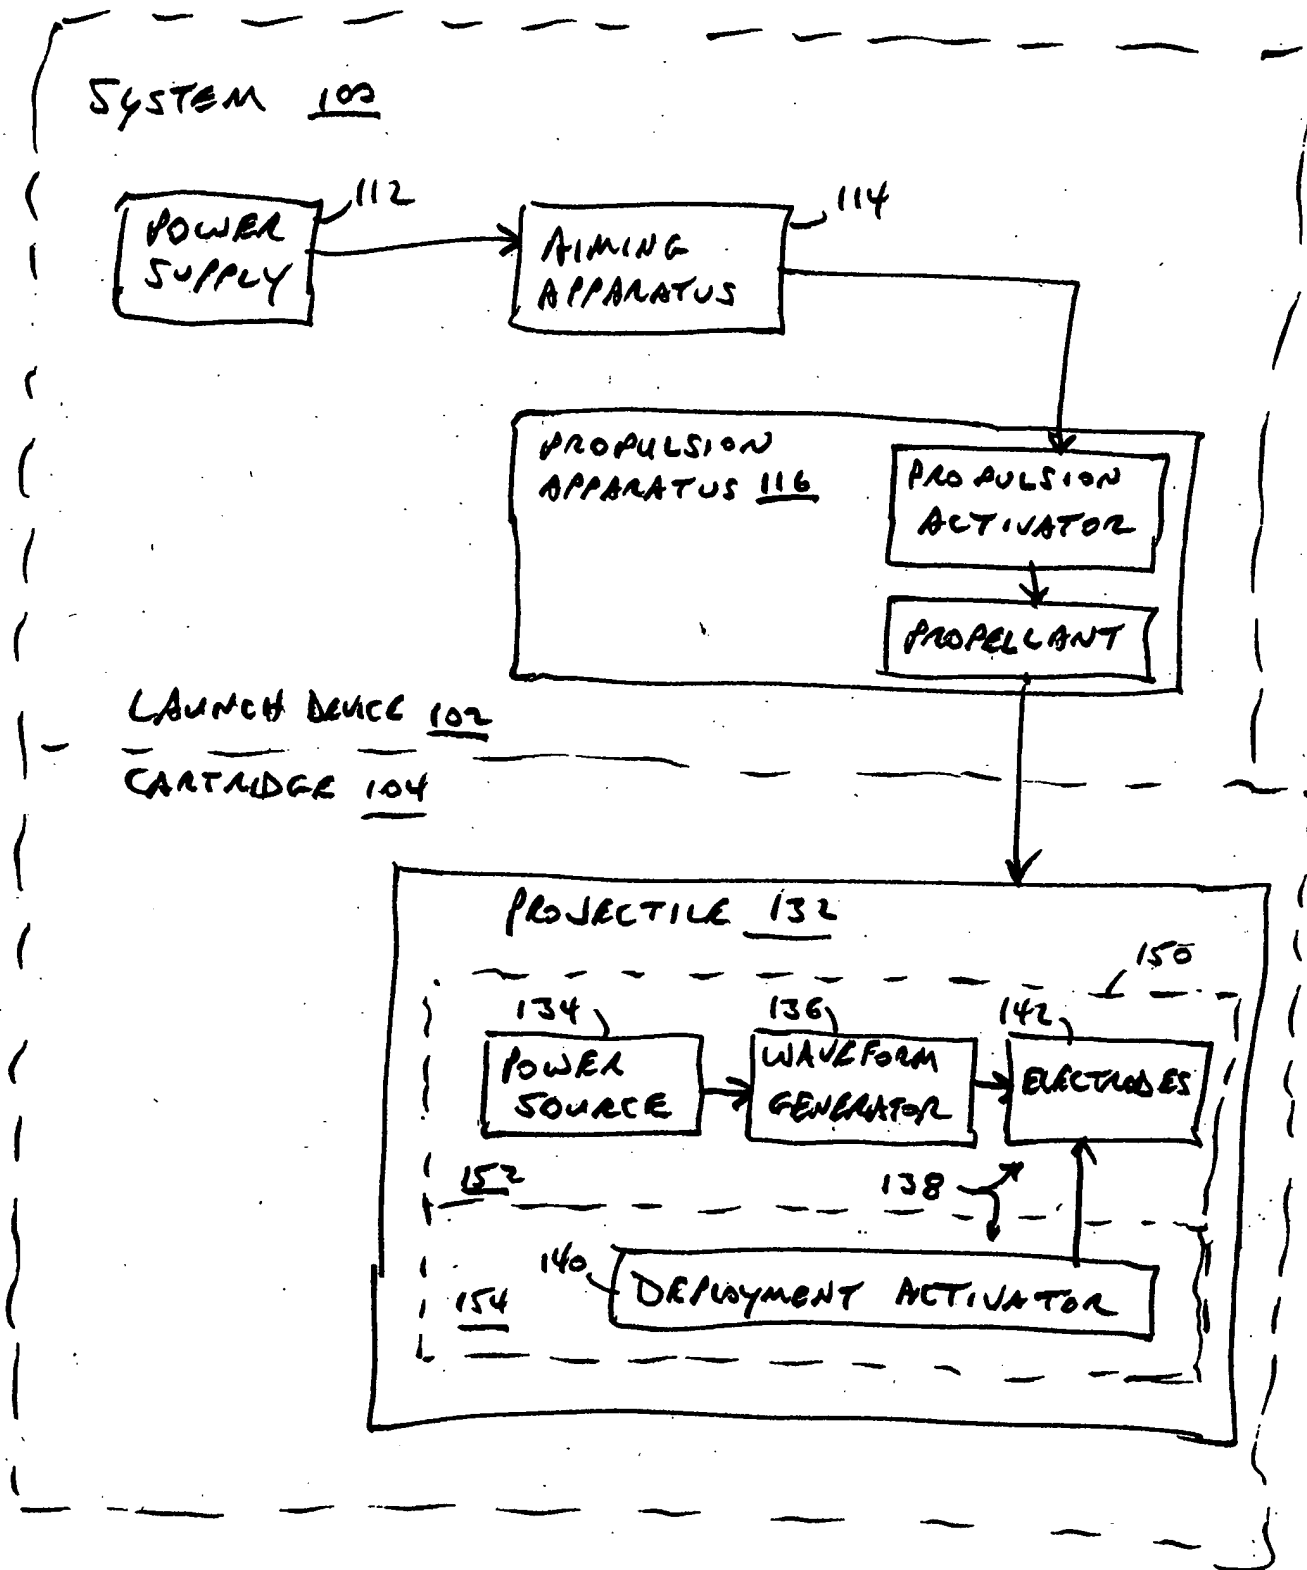 SYSTEM 100
112
POWER
SUPPLY
114
AIMING
APPARATUS
PROPULSION
APPARATUS 116
PROPULSION
ACTIVATOR
PROPELLANT
LAUNCH DEVICE 102
CARTRIDGE 104
PROJECTILE 132
150
134
POWER
SOURCE
136
WAVEFORM
GENERATOR
142
ELECTRODES
152
138
140
DEPLOYMENT ACTIVATOR
154